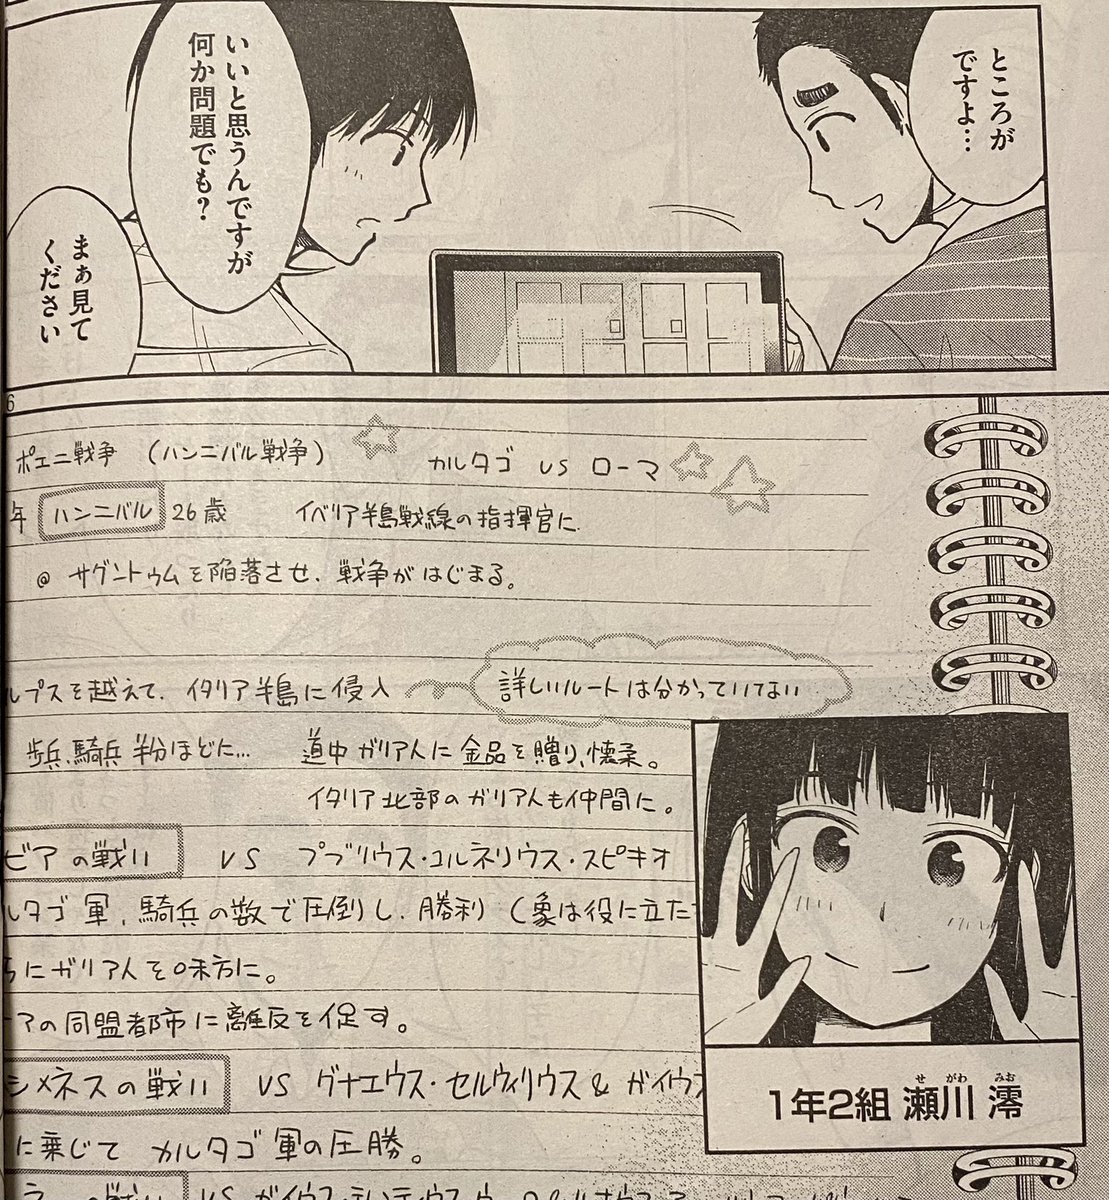 ところが
ですよ…
いいと思うんですが
何か問題でも?
まぁ見て
ください
6
ポエニ戦争 (ハンニバル戦争) カルタゴ VS ローマ
年 ハンニバル 26歳 イベリア半島戦線の指揮官に
@ サグントゥムを陥落させ、戦争がはじまる。
ルプスを越えて、イタリア半島に侵入 詳しいルートは分かっていてない
歩兵、騎兵 半分ほどに… 道中ガリア人に金品を贈り、懐柔。
イタリア北部のガリア人も仲間に。
ビアの戦い VS プブリウス・コルネリウス・スピキオ
ルタゴ軍、騎兵の数で圧倒し、勝利 (象は役に立た
らにガリア人を味方に。
アの同盟都市に離反を促す。
シメネスの戦い VS グナエウス・セルウィリウス & ガイウス
に乗じて カルタゴ軍の圧勝。
VS ガイウス・テレンティウス
せ がわ みお
1年2組 瀬川 澪